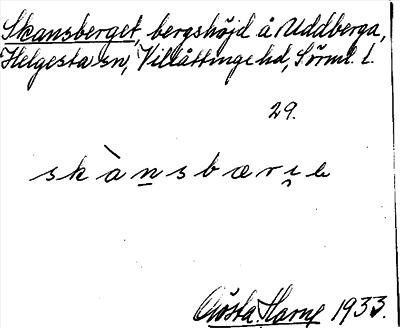 Skansberget, bergshöjd å Uddberga,
Helgesta sn, Villåttinge hd, Sörml. l.
29.
skànsbærịe
Gösta Harne 1933.